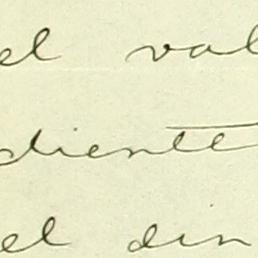 el val
diente
el din